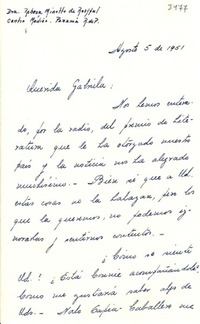 3977
Dra. Débora Miretto de Roessel
Centro Médico. Panamá R de P.
Agosto 5 de 1951
Querida Gabriela:
Nos hemos entera-
do, por la radio, del premio de Lite-
ratura que le ha otorgado nuestro
país y la noticia nos ha alegrado
muchísimo. - Bien sé que a Ud.
estas cosas no la halagan, pero los
que la queremos, no podemos ig-
norarlas y sentirnos contentos. -
¿Cómo se siente
Ud.? ¿Está Connie acompañándola?
Como me gustaría saber algo de
Uds. - Nato Caballero me